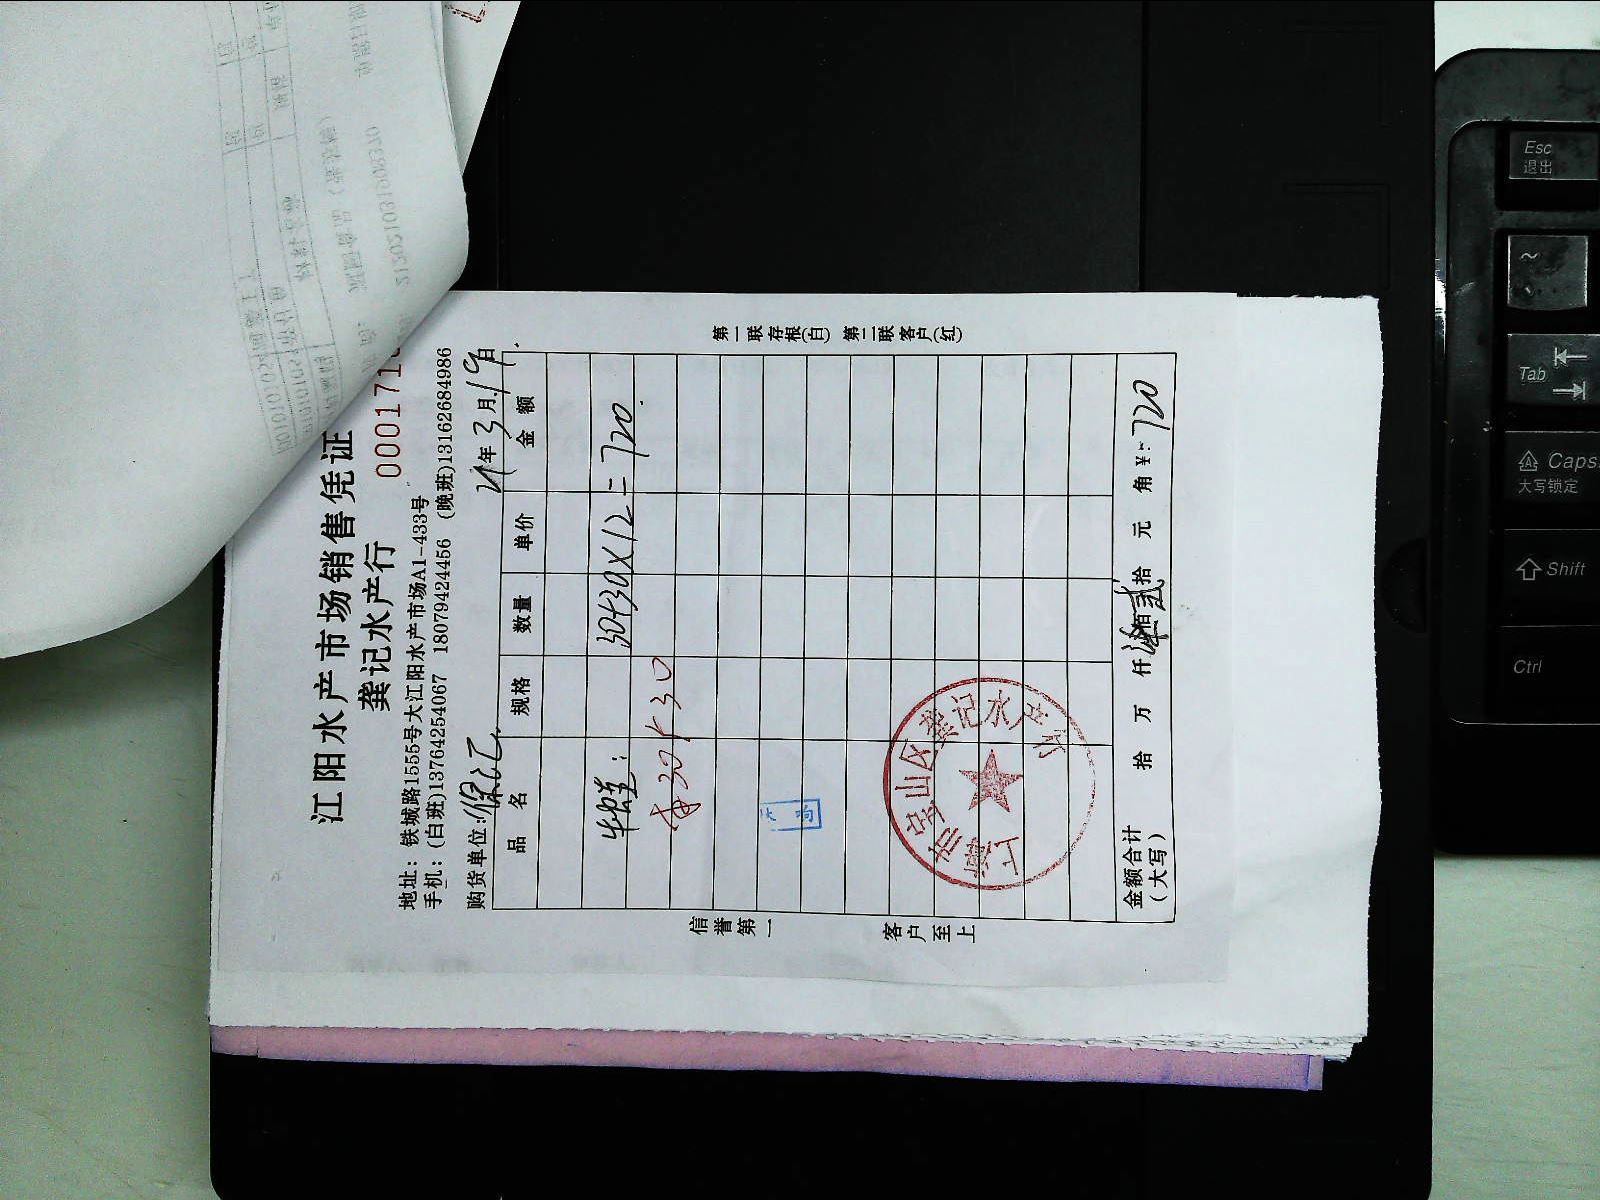 江阳水产市场销售凭证
龚记水产行
000171
地址：铁城路1555号大江阳水产市场A1-433号
手机：(白班)13764254067 18079424456 (晚班)13162684986
购货单位： 21年3月19日
品名 规格 数量 单价 金额
牛蛙： 30+30×12=720.
30+30
上海市宝山区龚记水产行
金额合计(大写) 拾 万 仟 柒佰贰拾 元 角 ¥：720
信誉第一 客户至上
第一联存根(白) 第二联客户(红)
212021031909370
Esc
退出
~
Tab
Caps
大写锁定
Shift
Ctrl